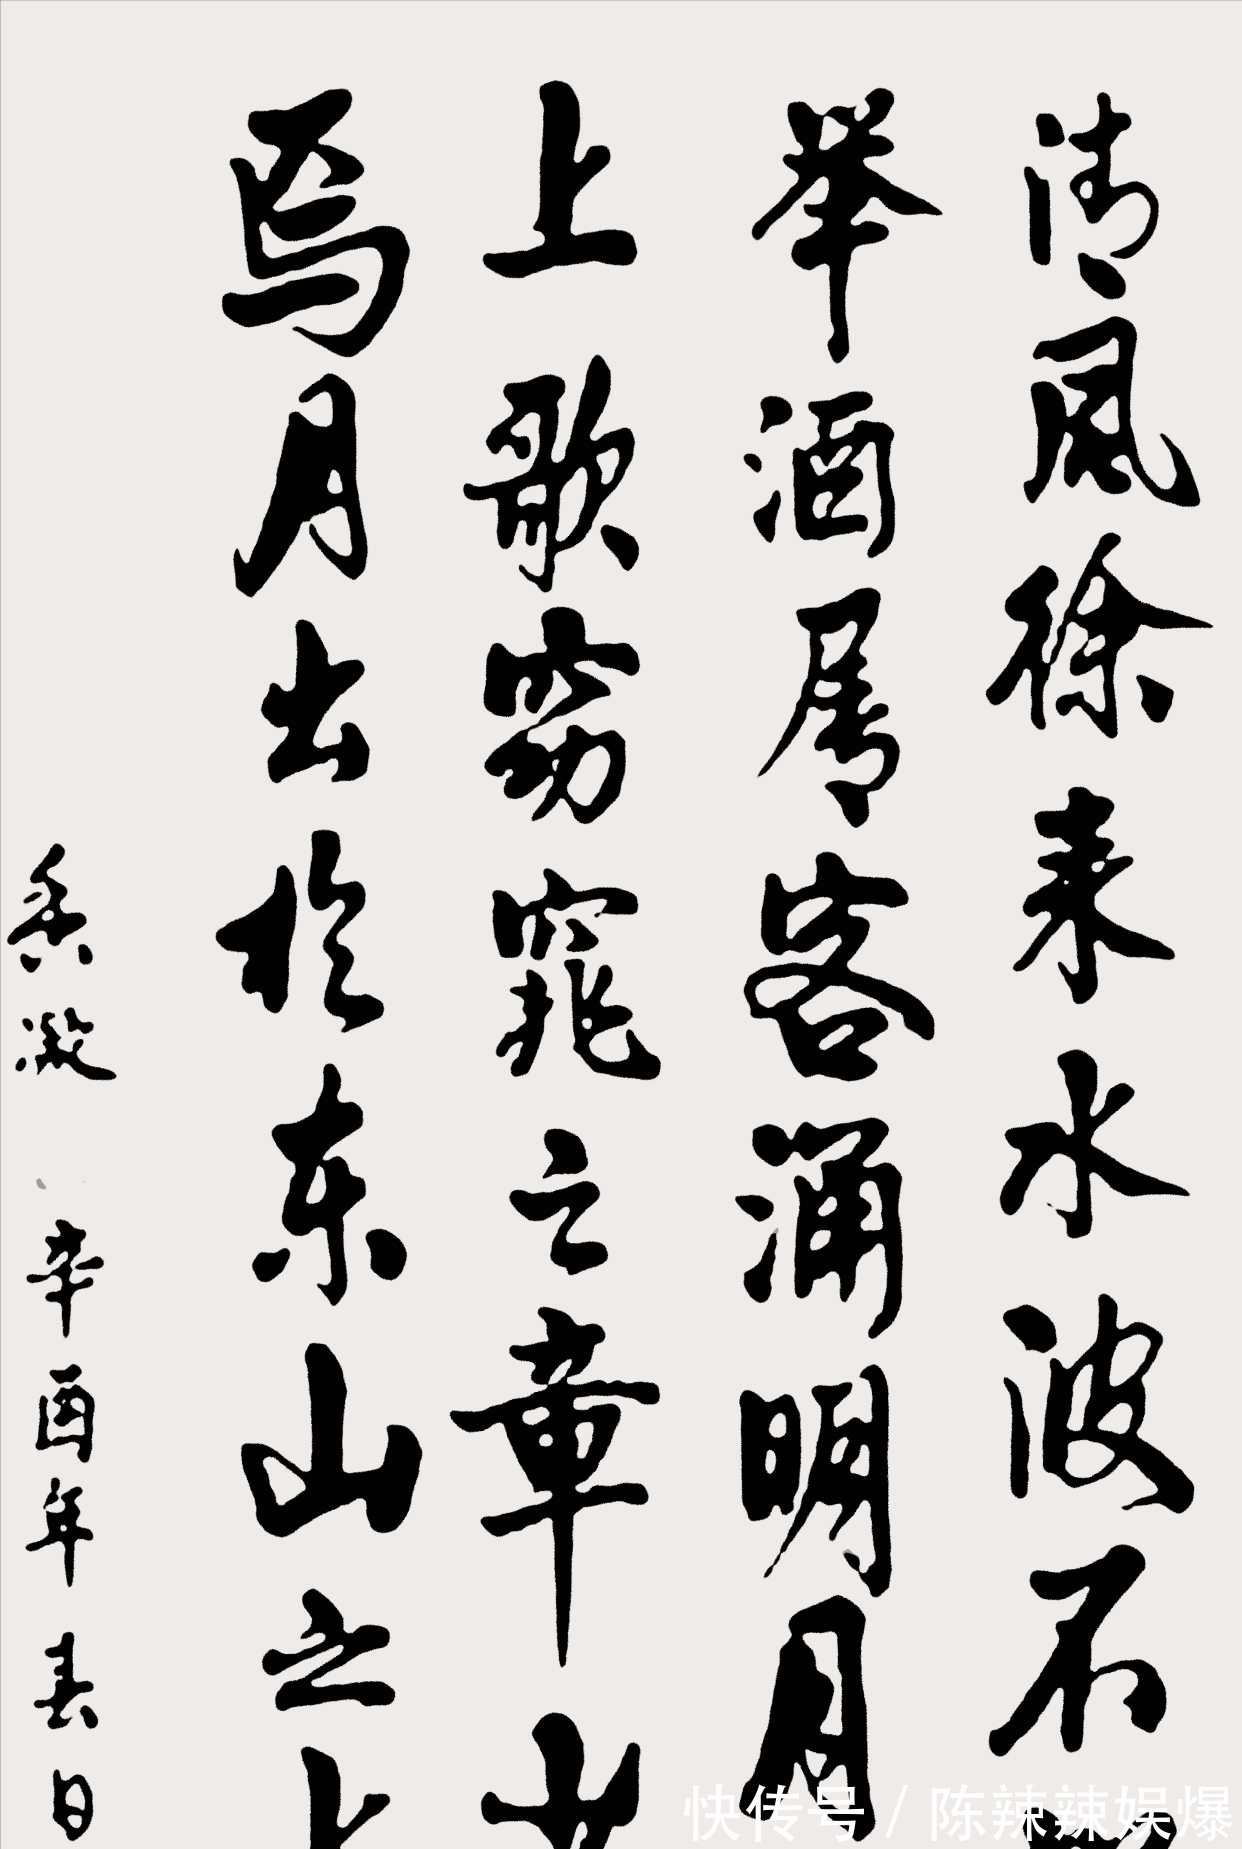 清風徐来水波不
举酒属客涌明月
上歌窈窕之章少
焉月出於东山之上
香凝 辛酉年春日
快传号/陈辣辣娱爆